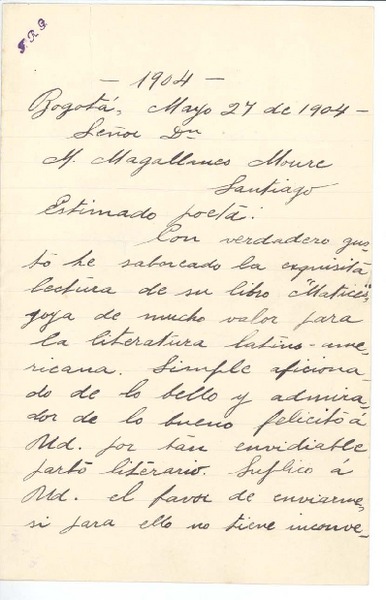 F. R. G.
— 1904 —
Bogotá, Mayo 27 de 1904 —
Señor Dn
M. Magallanes Moure
Santiago
Estimado poeta:
Con verdadero gus-
to he saboreado la exquisita
lectura de su libro "Matices",
goya de mucho valor para
la literatura latino-ame-
ricana. Simple aficiona-
do de lo bello y admira-
dor de lo bueno felicito á
Ud. por tan envidiable
parto literario. Suplico á
Ud. el favor de enviarme,
si para ello no tiene inconve-